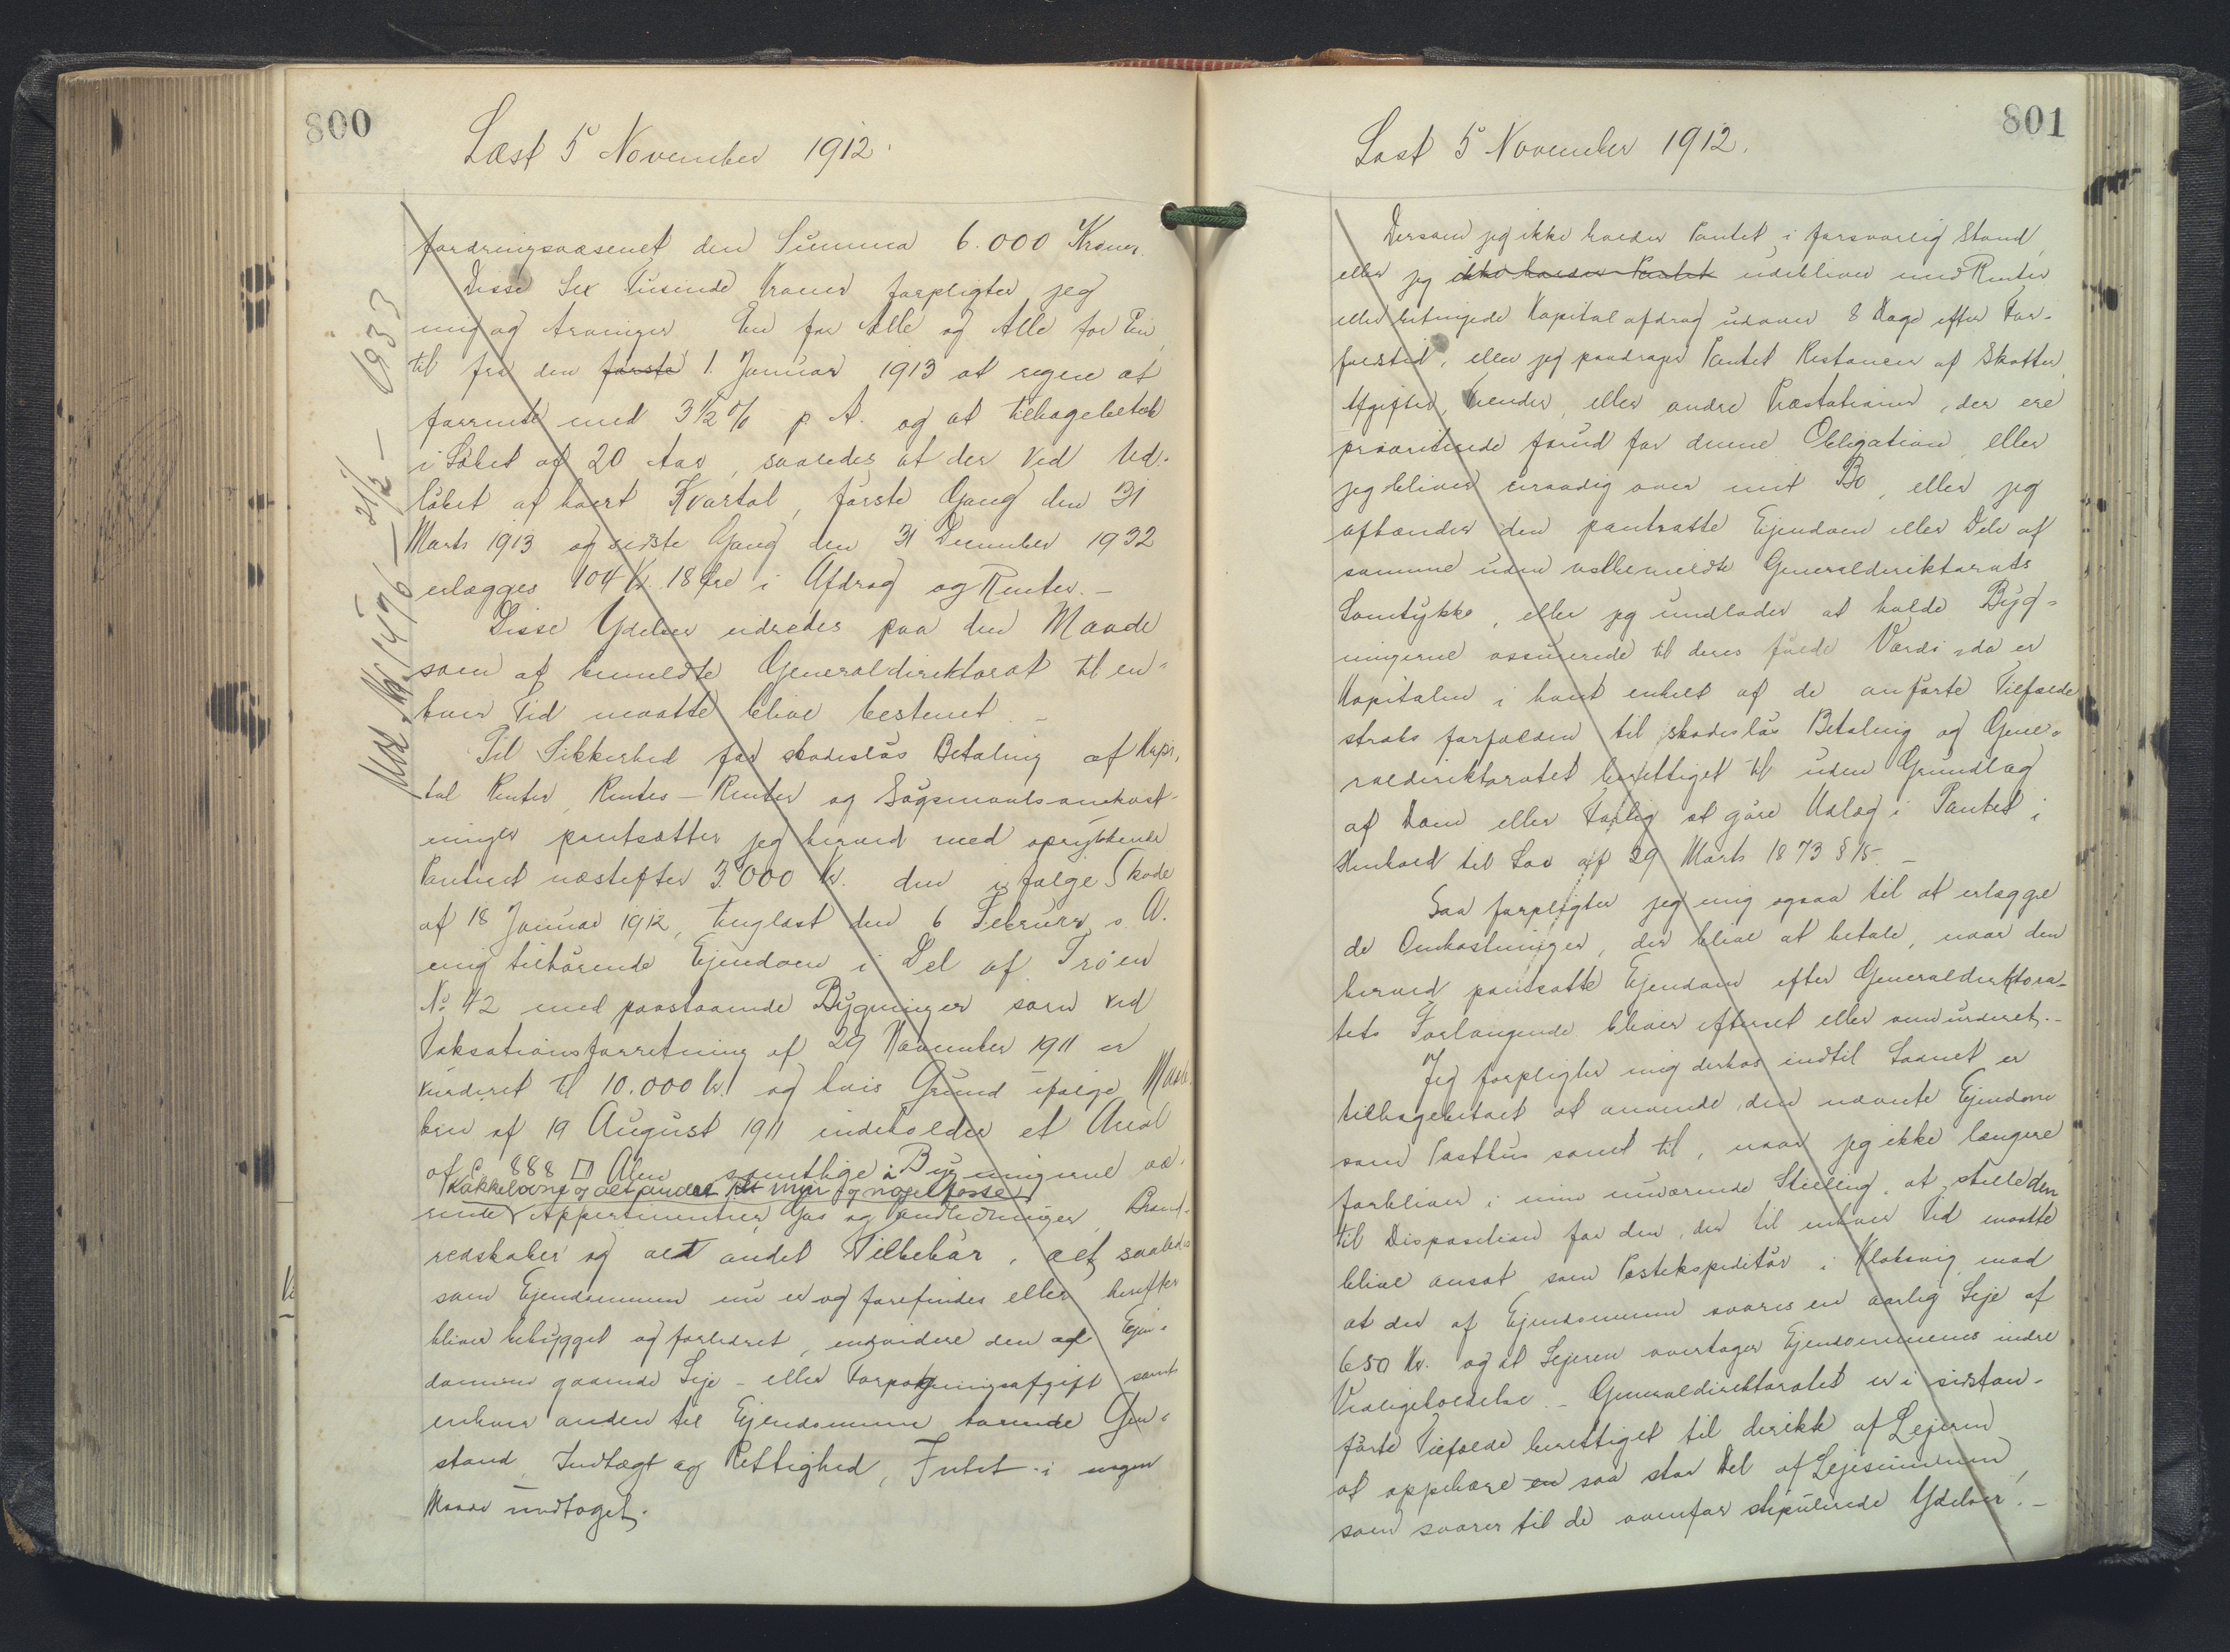 800
Læst 5 November 1912.
fordringsvæsenet den Summa 6.000 Kroner.
Disse Sex Tusinde Kroner forpligter jeg
mig og Arvinger En for Alle og Alle for Een,
til fra den første 1. Januar 1913 at regne at
forrente med 3½ % p. A. og at tilbagebetale
i Løbet af 20 Aar, saaledes at der ved Ud-
løbet af hvert Kvartal, første Gang den 31
Marts 1913 og sidste Gang den 31 December 1932
erlægges 104 Kr. 18 Øre i Afdrag og Renter. —
Disse Ydelser udredes paa den Maade
som af bemeldte Generaldirektorat til en-
hver Tid maatte blive bestemt. —
Til Sikkerhed for skadesløs Betaling af Kapi-
tal Renter, Rentes-Renter og Søgsmaalsomkost-
ninger pantsætter jeg herved med oprykkende
Panteret næstefter 3000 Kr. den ifølge Skøde
af 18 Januar 1912, tinglæst den 6 Februar s. A.
mig tilhørende Ejendom i Del af Trøen
No 42 med paastaaende Bygninger som ved
Taksationsforretning af 29 November 1911 er
vurderet til 10.000 Kr. og hvis Grund ifølge
af 19 August 1911 indeholder et Areal
af c. 888 □ Alen samtlige i Bygningerne væ-
Kakkelovne og alt andet mur og nagelfaste
rende Appertinentier, Gas og Vandledninger, Brand-
redskaber og alt andet Tilbehør, alt saaledes
som Ejendommen nu er og forefindes eller herefter
bliver bebygget og forbedret, endvidere den af Ejen-
dommen gaaende Leje- eller Forpagtningsafgift samt
enhver anden til Ejendommen hørende Gen-
stand, Indtægt og Rettighed, Intet i nogen
Maade undtaget.
Nr. 1476 — 21/2 — 1933
801
Læst 5 November 1912.
Dersom jeg ikke holder Pantet i forsvarlig Stand,
eller jeg ikke holder Pantet udebliver med Renter
eller betingede Kapitalafdrag udover 8 Dage efter For-
faldstid, eller jeg paadrager Pantet Restancer af Skatter,
Afgifter, Tiender, eller andre Præstationer, der ere
prioriterede forud for denne Obligation, eller
jeg bliver uraadig over mit Bo, eller jeg
afhænder den pantsatte Ejendom eller Dele af
samme uden velbemeldte Generaldirektorats
Samtykke, eller jeg undlader at holde Byg-
ningerne assurerede til deres fulde Værdi, da er
Kapitalen i hvert enkelt af de anførte Tilfælde
straks forfalden til skadesløs Betaling og Gene-
raldirektoratet berettiget til uden Grundlag
af Dom eller Forlig at gøre Udlæg i Pantet i
Henhold til Lov af 29 Marts 1873 § 15. —
Saa forpligter jeg mig ogsaa til at erlægge
de Omkostninger, der blive at betale, naar den
herved pantsatte Ejendom efter Generaldirektora-
tets Forlangende bliver efterset eller omvurderet. —
Jeg forpligter mig derhos indtil Laanet er
tilbagebetalt at anvende den nævnte Ejendom
som Posthus samt til, naar jeg ikke længere
forbliver i min nuværende Stilling, at stille den
til Disposition for den, der til enhver Tid maatte
blive ansat som Postekspeditør i Klaksvig mod
at der af Ejendommen svares en aarlig Leje af
650 Kr. og at Lejeren overtager Ejendommens indre
Vedligeholdelse. — Generaldirektoratet er i sidstan-
førte Tilfælde berettiget til direkte af Lejeren
at oppebære en saa stor Del af Lejesummen,
som svarer til de ovenfor stipulerede Ydelser. —